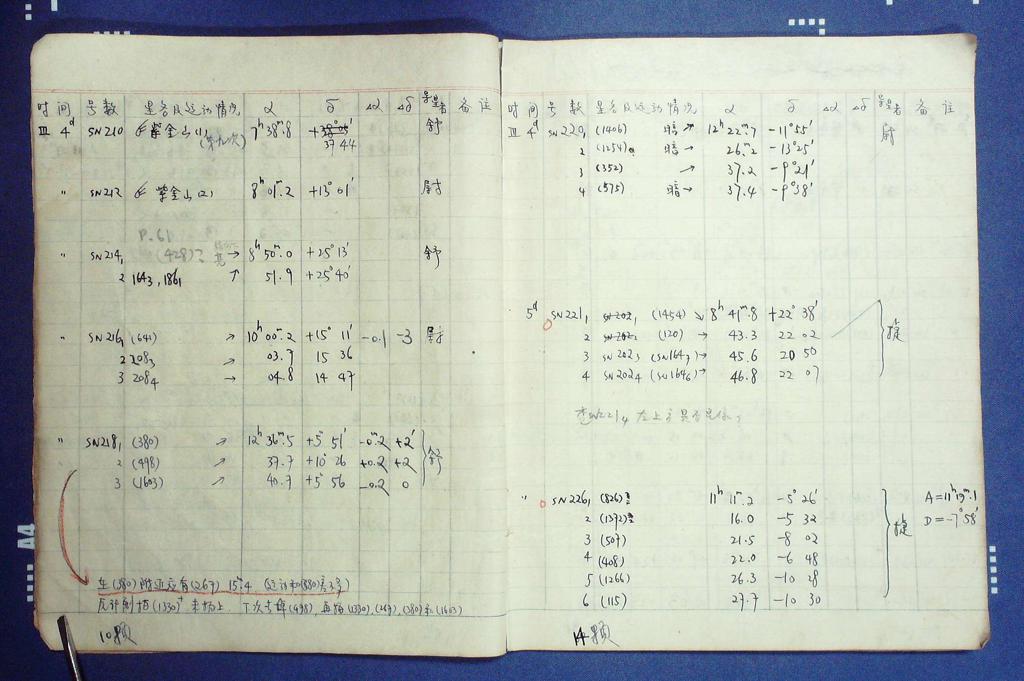 时间 号数 星名及运动情况 α δ Δα Δδ 寻星者 备注
Ⅲ 4ᵈ SN210 紫金山(1) 7ʰ38ᵐ.8 舒
(第九次) 37 44
" SN212 紫金山(2) 8ʰ01ᵐ.2 +13°01′ 尉
P.61
" SN214₁ (428)? → 8ʰ50ᵐ.0 +25°13′ 舒
2 1643, 1861 ↗ 51.9 +25°40′
SN216₁ (641) ↗ 10ʰ00ᵐ.2 +15°11′ -0.1 -3 尉
2 208₃ ↗ 03.7 15 36
3 208₄ → 04.8 14 47
" SN218₁ (380) ↗ 12ʰ36ᵐ.5 +5°51′ -0ᵐ.2 +2′ 舒
" 2 (498) ↗ 37.7 +10°26 +0.2 +2
3 (1603) ↗ 40.7 +5°56 -0.2 0
在(380)附近应有(267) 15ᵐ.4
(1330) 下次 (498), (1330), (267), (380)和(1603)
10颗
时间 号数 星名及运动情况 α δ Δα Δδ 寻星者 备注
Ⅲ 4ᵈ SN220₁ (1406) 暗↗ 12ʰ22ᵐ.7 -11°55′ 尉
2 (1254) 暗→ 26ᵐ.2 -13°25′
3 (352) ↗ 37.2 -9°21′
4 (575) 暗→ 37.4 -9°38′
5ᵈ SN221₁ SN202₁ (1454) ↘ 8ʰ41ᵐ.8 +22°38′ 捷
2 SN202₂ (120) → 43.3 22 02
3 SN202₃ (SN164₇) → 45.6 20 50
4 SN202₄ (SN164₆) → 46.8 22 07
SN221₄ 左上方是否是你?
" SN226₁ (826) 11ʰ11ᵐ.2 -5°26′ 捷 A=11ʰ19ᵐ.1
2 (1372) 16.0 -5 32 D=-7°58′
3 (507) 21.5 -8 02
4 (408) 22.0 -6 48
5 (1266) 26.3 -10 28
6 (115) 27.7 -10 30
14颗
A4